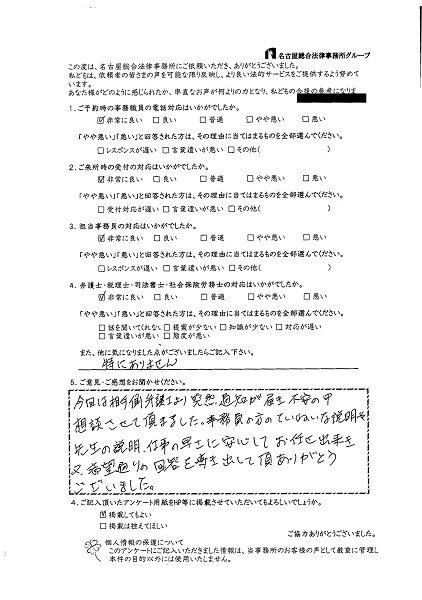 名古屋総合法律事務所グループ
この度は、名古屋総合法律事務所にご依頼いただき、ありがとうございました。
私どもは、依頼者の皆さまの声を可能な限り反映し、より良い法的サービスをご提供するよう努めて
います。
あなた様がどのように感じられたか、率直なお声が何よりの力となり、私どもの今後の参考になりま
1.ご予約時の事務職員の電話対応はいかがでしたか。
☑非常に良い □良い □普通 □やや悪い □悪い
「やや悪い」「悪い」と回答された方は、その理由に当てはまるものを全部選んでください。
□レスポンスが遅い □言葉遣いが悪い □その他( )
2.ご来所時の受付の対応はいかがでしたか。
☑非常に良い □良い □普通 □やや悪い □悪い
「やや悪い」「悪い」と回答された方は、その理由に当てはまるものを全部選んでください。
□受付対応が遅い □言葉遣いが悪い □その他( )
3.担当事務員の対応はいかがでしたか。
☑非常に良い □良い □普通 □やや悪い □悪い
「やや悪い」「悪い」と回答された方は、その理由に当てはまるものを全部選んでください。
□レスポンスが遅い □言葉遣いが悪い □その他( )
4.弁護士・税理士・司法書士・社会保険労務士の対応はいかがでしたか。
☑非常に良い □良い □普通 □やや悪い □悪い
「やや悪い」「悪い」と回答された方は、その理由に当てはまるものを全部選んでください。
□話を聞いてくれない □提案が少ない □知識が少ない □対応が遅い
□言葉遣いが悪い □態度が悪い
また、他に気になりました点がございましたらご記入下さい。
特にありません
5.ご意見・ご感想をお聞かせください。
今回は相手側弁護士より突然通知が届き不安の中
相談させて頂ました。事務員の方のていねいな説明や
先生の説明、仕事の早さに安心してお任せ出来た
又希望通りの回答を導き出して頂ありがとう
ございました。
4.ご記入頂いたアンケート用紙をHP等に掲載させていただいてもよろしいでしょうか。
☑掲載してもよい
□掲載は控えてほしい
ご協力ありがとうございました。
個人情報の保護について
このアンケートにご記入いただきました情報は、当事務所のお客様の声として厳重に管理し
本件の目的以外には使用いたしません。